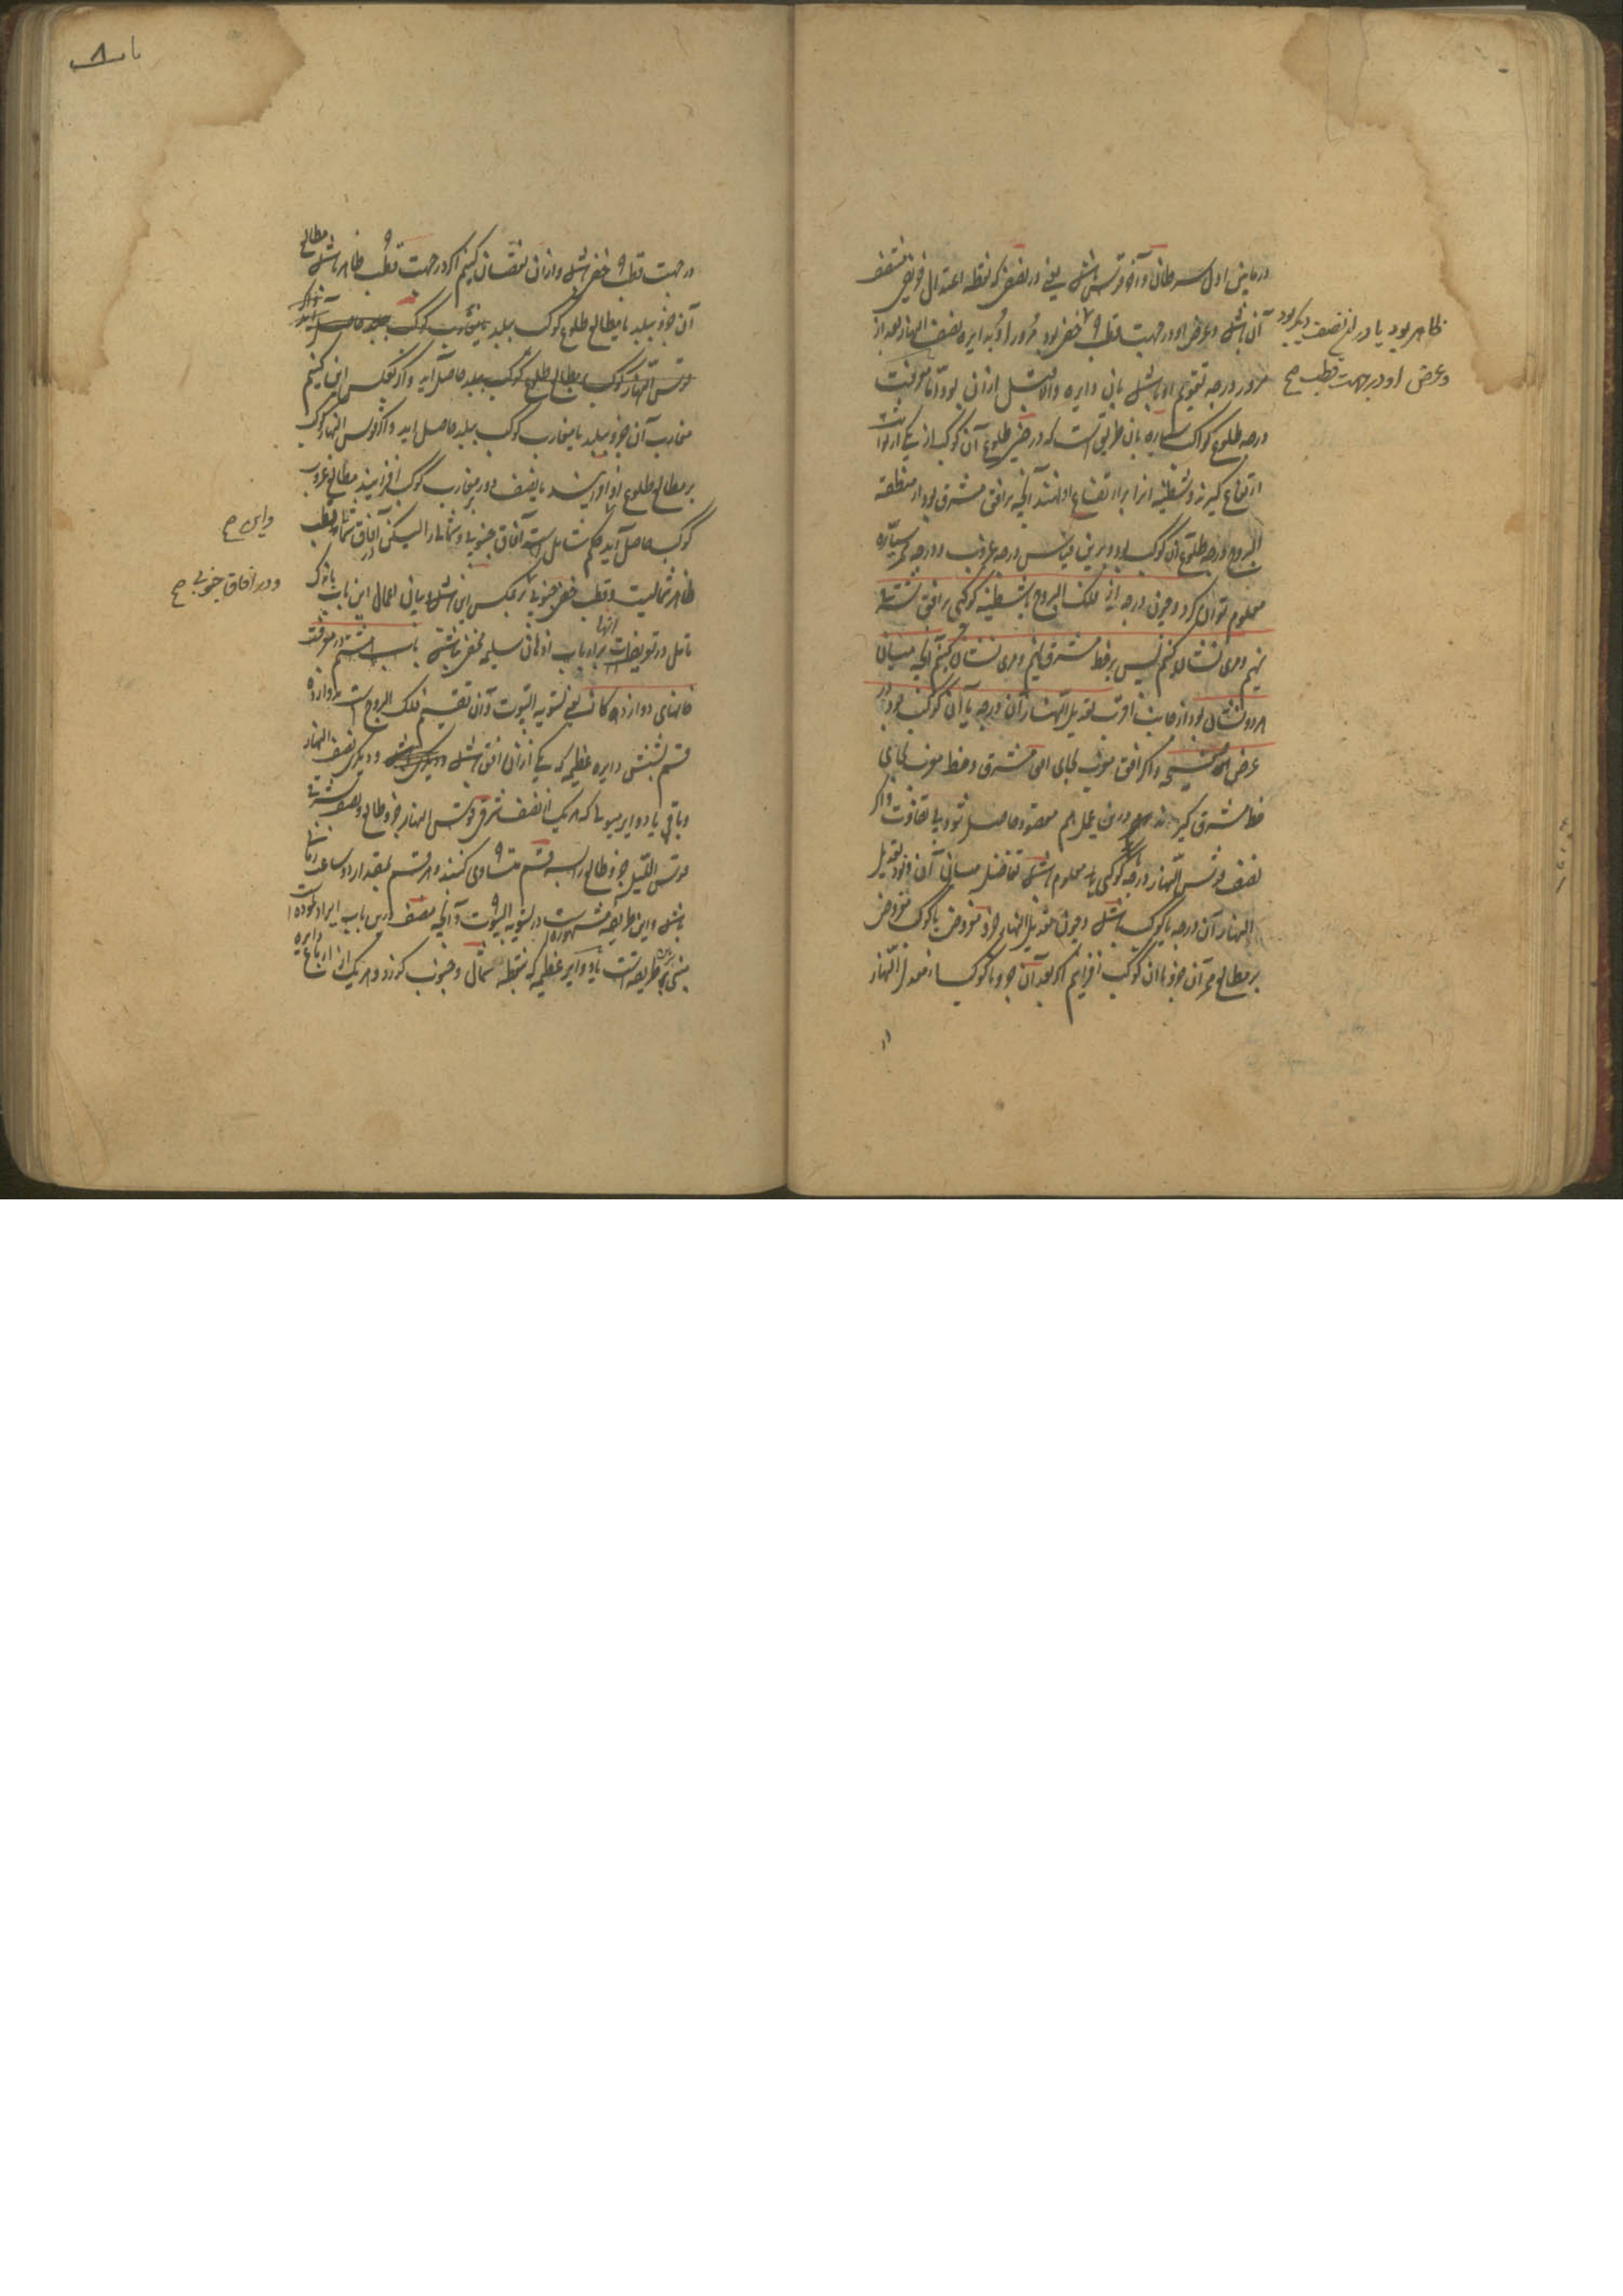 در مابین اول سرطان و آخر قوس باشد یعنی در نصفی که نقطه اعتدال خریفی منتصف
آن باشد و عرض او در جهت قطب خفی بود مرور او بدایره نصف النهار بعد از
مرور درجه تقویم او باشد بان دایره والا قبل ازان بود و اما معرفت
درجه طلوع کواکب سیاره بان طریق است که در حین طلوع آن کوکب از یکی از ثوابت
ارتفاع گیرند و شظیه انرا بر ارتفاع او نهند آنچه بر افق مشرق بود از منطقة
البروج درجه طلوع آن کوکب بود و برین قیاس درجه غروب و درجه ممر سیاره
معلوم توان کرد و چون درجه از فلک البروج یا شظیه کوکبی بر افق مشرق
نهیم و مری نشان کنیم پس بر خط مشرق نهیم و مری نشان کنیم آنچه میان
هر دو نشان بود از جانب اقرب تعدیل النهار آن درجه یا آن کوکب بود در
عرض صفیحه و اگر افق مغرب بجای افق مشرق و خط مغرب بجای
خط مشرق گیرند درین عمل هم مقصود حاصل شود یا تفاوت و اگر
نصف قوس النهار درجه یا کوکبی معلوم باشد تفاضل میان آن و نود تعدیل
النهار آن درجه یا کوکب باشد و چون تعدیل النهار جزو مفروض یا کوکب مفروض
بر مطالع ممر آن جزو یا آن کوکب افزاییم اگر بعد آن جزو یا کوکب از معدل النهار
ظاهر بود یا در آن نصف دیگر بود
و عرض او در جهت قطب صح
باب ۸
در جهت قطب خفی باشد و ازان نقصان کنیم اگر در جهت قطب ظاهر باشد مطالع
آن جزو ببلد یا مطالع طلوع کوکب ببلد یا مغارب کوکب
قوس النهار کوکب بمطالع طلوع کوکب ببلد حاصل آید و اگر بعکس این کنیم
مغارب آن جزو ببلد یا مغارب کوکب ببلد حاصل آید و اگر قوس النهار کوکب
بر مطالع طلوع او افزایند یا نصف دور بر مغارب کوکب افزایند مطالع غروب
کوکب حاصل آید حکم شامل است آفاق جنوبی و شمالی را لیکن در آفاق شمالی قطب
ظاهر شمالیست و قطب خفی جنوبی بر عکس این باشد و بیان اعمال این باب باندک
تامل در تعریفات آنها بر ارباب اذهان سلیمه مخفی نباشد باب هشتم در معرفت
خانهای دوازده گانه یعنی تسویة البیوت و آن تقسیم فلک البروج است بدوازده
قسم بشش دایره عظیمه که یکی ازان افق باشد و دیگری نصف النهار
و باقی بدوایر میول که هر یک از نصف شرقی قوس النهار جزو طالع و نصف شرقی
قوس اللیل جزو طالع را بسه قسم متساوی کنند و هر قسم بمقدار دو ساعت زمانی
باشد و این طریقه مشهوره است در تسویة البیوت و آنچه مصنف درین باب ایراد نموده
مبنی بر طریقه است یا دوایر عظیمه که بنقطه شمال و جنوب گذرد و هر یک از ارباع دایره
و این صح
و در آفاق جنوبی صح